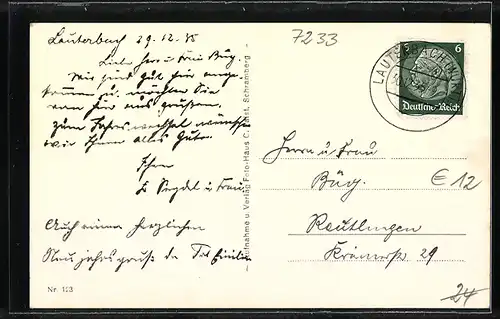 Lauterbach 29.12.35
Liebe Herr u Frau Büg.
Wir sind gut hier ange-
kommen u. möchten Sie
von hier aus grüßen.
Zum Jahreswechsel wünschen
wir Ihnen alles Gute.
Ihre
u Frau
Auch einen herzlichen
Neujahrsgruß
Nr. 113
Aufnahme u. Verlag Foto-Haus C. Schramberg
7233
LAUTERBACH
6
Deutsches Reich
Herrn u Frau
Büg.
Reutlingen
Krämerstr 29
€ 12
24